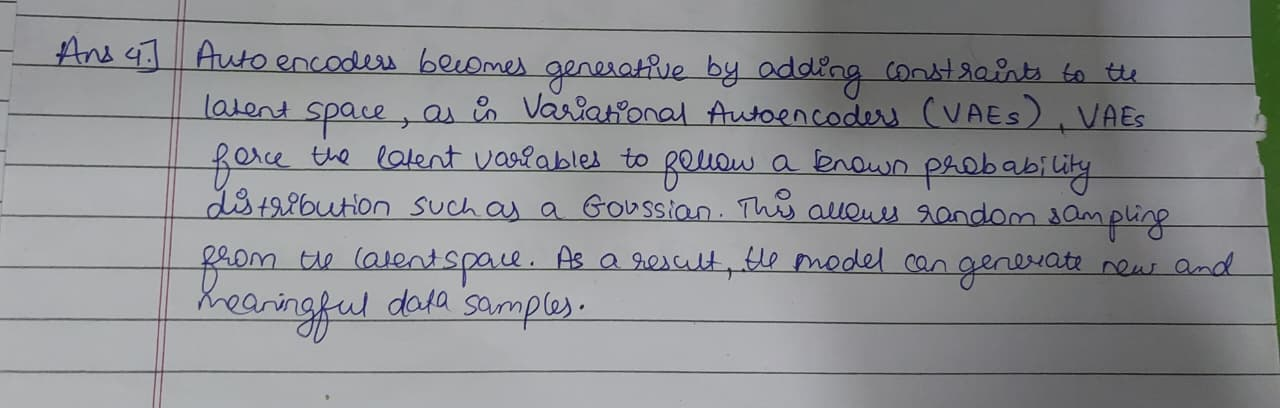 Ans 4.] Autoencoders becomes generative by adding constraints to the
latent space, as in Variational Autoencoders (VAEs), VAEs
force the latent variables to follow a known probability
distribution such as a Gaussian. This allows random sampling
from the latent space. As a result, the model can generate new and
meaningful data samples.